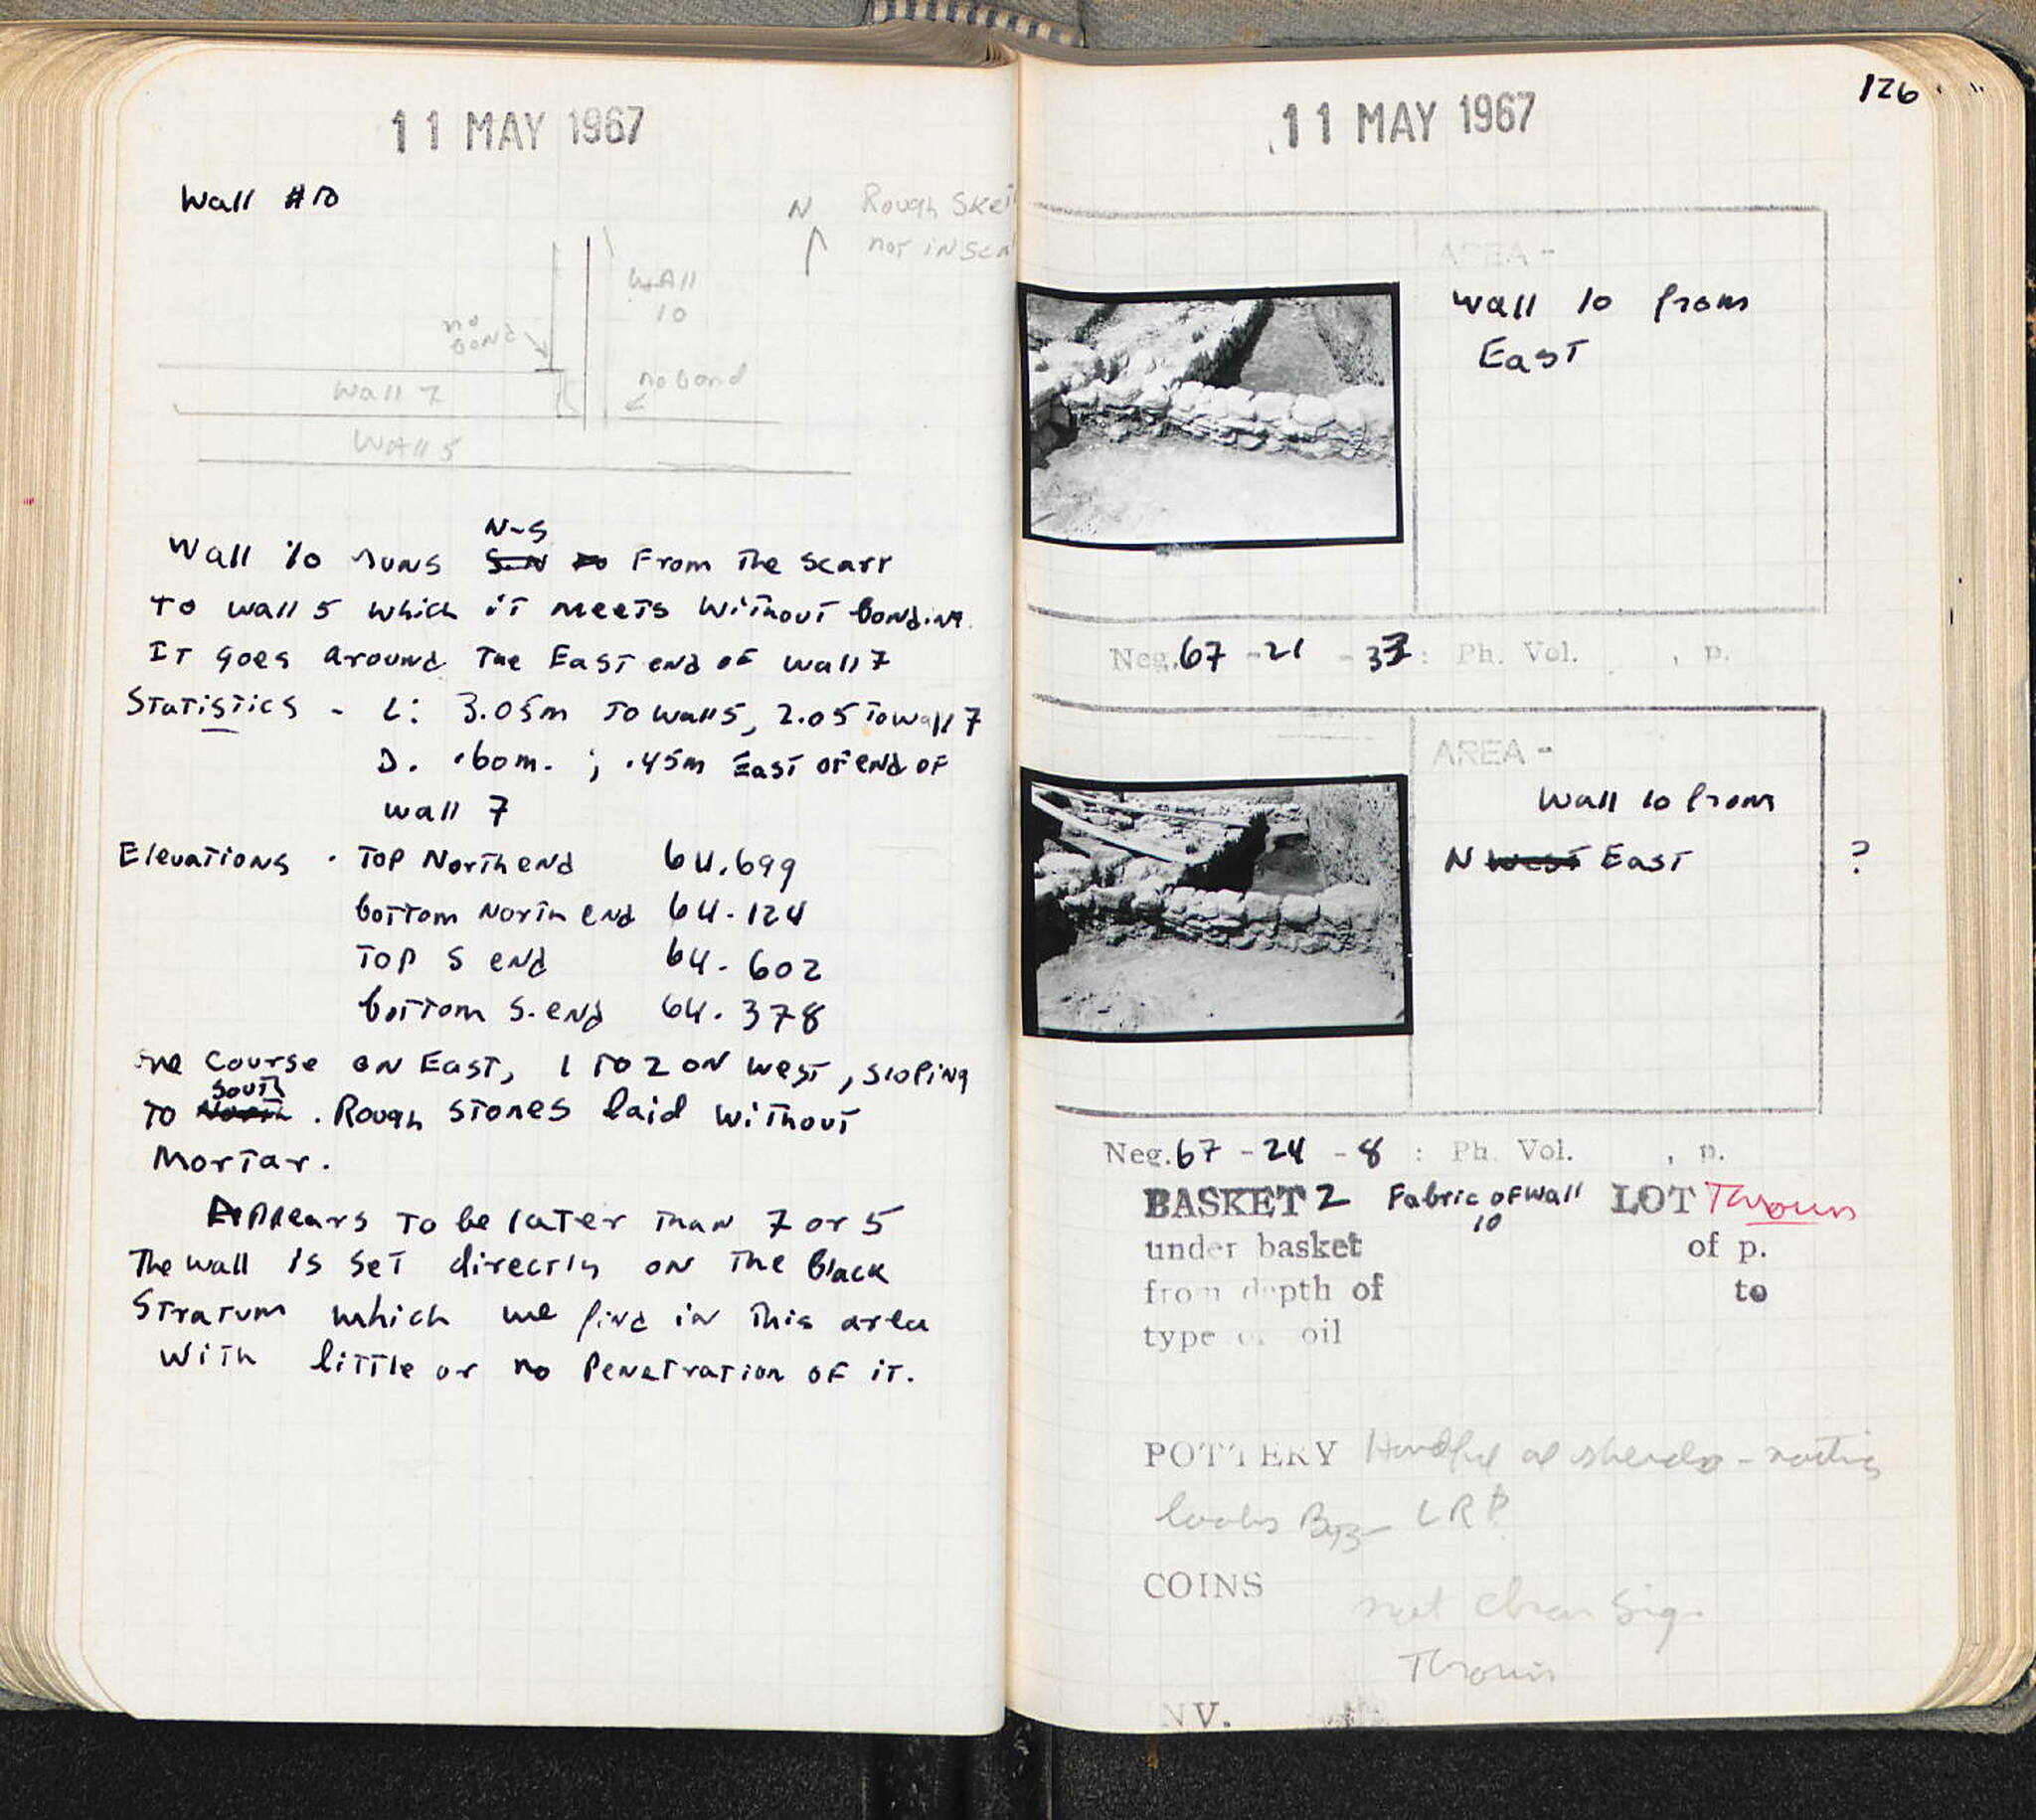 11 MAY 1967
Wall #10
N Rough Sket
not in Sca
Wall
10
no
bond
no bond
Wall 7
Wall 5
N-S
Wall 10 runs S-N From The Scarp
To wall 5 which it meets Without bonding.
It goes around The East end of wall 7
Statistics - L: 3.05m To wall 5, 2.05 To wall 7
D. .60m. ; .45m East of end of
wall 7
Elevations . Top North end 64.699
bottom North end 64.124
Top S end 64.602
bottom S. end 64.378
One Course on East, 1 To 2 on west, sloping
South
To North. Rough stones laid without
Mortar.
Appears To be later Than 7 or 5
The wall is set directly on The Black
Stratum which we find in This area
With little or no Penetration of it.
11 MAY 1967
126
AREA -
Wall 10 from
East
Neg. 67 - 21 - 33 : Ph. Vol. , p.
AREA -
Wall 10 from
N west East ?
Neg. 67 - 24 - 8 : Ph. Vol. , p.
BASKET 2 Fabric of Wall LOT Thrown
10
under basket of p.
from depth of to
type of soil
POTTERY Handful of sherds - nothing
looks Byz - LR?
COINS
not clear sig.
Thrown
NV.